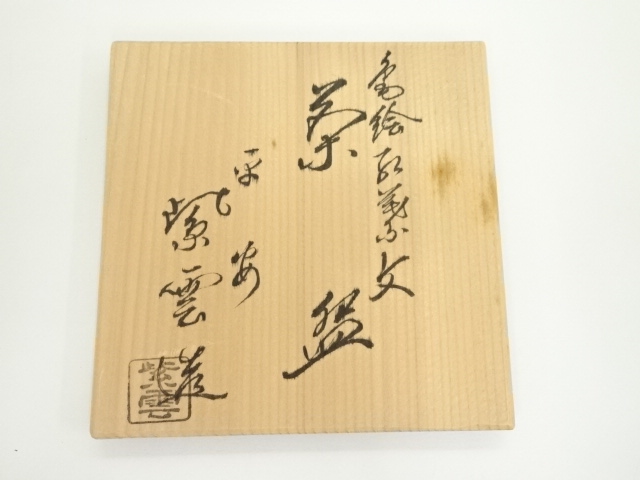 色絵紅葉文
茶盌
平安
紫雲造
紫雲